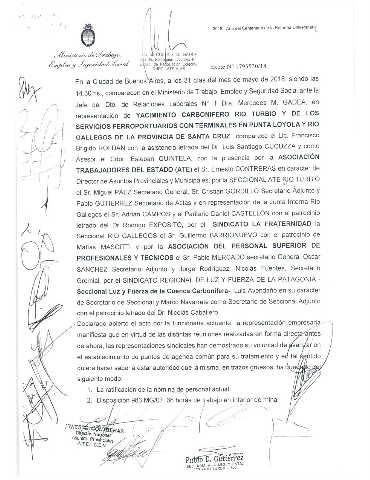 2018 - Año del Centenario de la Reforma Universitaria
Ministerio de Trabajo,
Empleo y Seguridad Social
En la Ciudad de Buenos Aires, a los 31 días del mes de mayo de 2018, siendo las
14.30 hs., comparecen en el Ministerio de Trabajo, Empleo y Seguridad Social, ante la
Jefa del Dto. de Relaciones Laborales N° 1 Dra. Mercedes M. GADEA, en
representación de YACIMIENTO CARBONIFERO RIO TURBIO Y DE LOS
SERVICIOS FERROPORTUARIOS CON TERMINALES EN PUNTA LOYOLA Y RIO
GALLEGOS DE LA PROVINCIA DE SANTA CRUZ comparece el Lic. Francisco
Brigido ROLDAN con la asistencia letrada del Dr. Luis Santiago CUCUZZA y como
Asesor el Cdor. Esteban QUINTELA, con la presencia por la ASOCIACIÓN
TRABAJADORES DEL ESTADO (ATE) el Sr. Ernesto CONTRERAS en carácter de
Director de Asuntos Provinciales y Municipales, por la SECCIONAL ATE RIO TURBIO
el Sr. Miguel PAEZ Secretario General, Sr. Cristian GORDILLO Secretario Adjunto y
Pablo GUTIERREZ Secretario de Actas y en representación de la Junta Interna Río
Gallegos el Sr. Adrián CAMPOS y el Paritario Daniel CASTELLON con el patrocinio
letrado del Dr. Rodrigo EXPOSITO, por el SINDICATO LA FRATERNIDAD la
Seccional RIO GALLEGOS el Sr. Guillermo BARRIONUEVO con el patrocinio de
Matías MASCOTTI y por la ASOCIACIÓN DEL PERSONAL SUPERIOR DE
PROFESIONALES Y TECNICOS el Sr. Pablo MERCADO secretario General, Oscar
SANCHEZ Secretario Adjunto y Jorge Rodríguez, Nicolás Fuentes, Secretario
Gremial, por el SINDICATO REGIONAL DE LUZ Y FUERZA DE LA PATAGONIA -
Seccional Luz y Fuerza de la Cuenca Carbonífera- Luis Avendaño en su carácter
de Secretario de Seccional y Marco Navarrete como Secretario de Seccional Adjunto
con el patrocinio letrado del Dr. Nicolás Caballero.
Declarado abierto el acto por la funcionaria actuante, la representación empresaria
manifiesta que en virtud de las distintas reuniones realizadas en forma directa antes
de ahora, las representaciones sindicales han demostrado su voluntad de avanzar en
el establecimiento de puntos de agenda común para su tratamiento y en tal sentido
quiere hacer saber a esta autoridad que la misma, en trazos gruesos, ha quedado del
siguiente modo:
1. La ratificación de la nómina de personal actual.
2. Disposición 983 MG/02. 36 horas de trabajo en interior de mina.
ERNESTO CONTRERAS
Pablo D. Gutiérrez